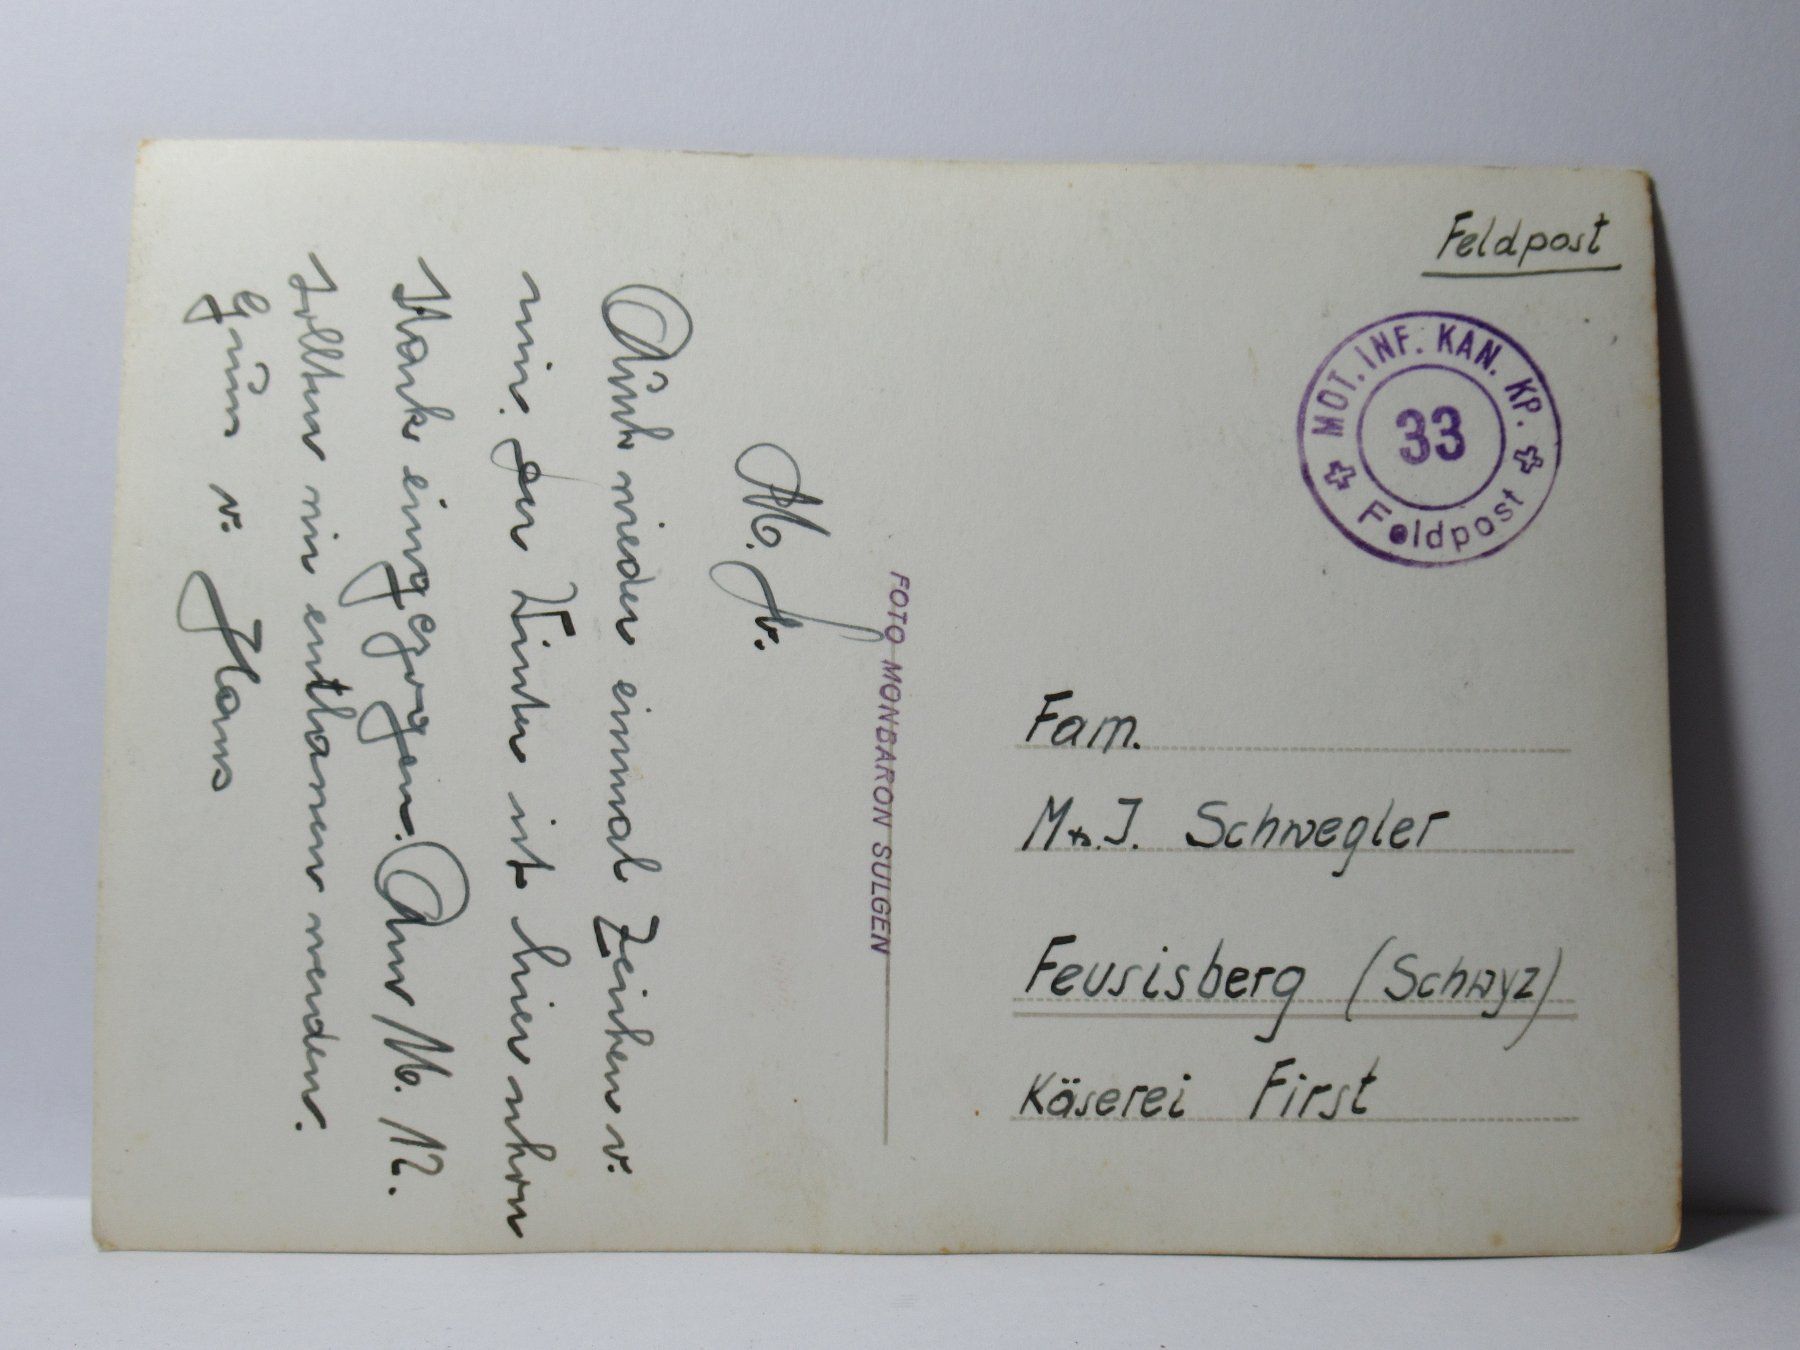 Feldpost
MOT. INF. KAN. KP.
33
Feldpost
Fam.
Schwegler
Feusisberg (Schwyz)
Käserei First
FOTO MONBARON SULGEN
M. Lb.
Auch wieder einmal Zeichen v.
mir. Der Winter ist hier schon
stark eingezogen. Am 12.
sollten wir entlassen werden.
Gruss v. Hans